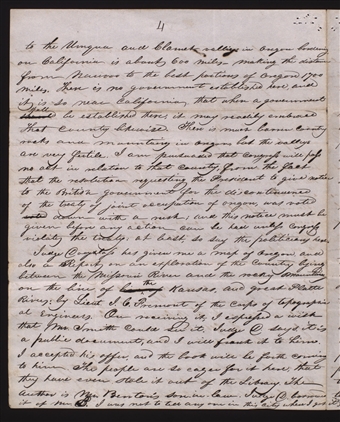 4
to the Umqua and Clamet valleys in oregon bordering
on California is about 600 miles. making the distance
from Nauvoo to the best portions of oregon 1700
miles. There is no government established here and
it is so near California, that when a government
shall be established there, it may readily embrace
that country likewise. There is much barren country
rocks and mountains in oregon but the vallies
are very fertile. I am persuaded that congress will pass
no act in relation to that country, from the fact
that the resolution requesting the President to give notice
to the British government for the discontinuance
of the treaty of joint occupation of oregon, was voted
down with a rush, and this notice must be
given before any action can be had unless Congress
violates the treaty; at least so say the politicians here.
Judge Douglas has given me a map of oregon and
also a Report on an exploration of the Country lying
between the Missouri River and the rocky mountains
on the line of the Kansas and great Platte
Rivers; by Lieut J. C. Fremont of the Corps of topographical
Engineers. On receiving it, I expressed a wish
that Mr Smith could see it. Judge D. says it is
a public document, and I will frank it to him.
I accepted his offer, and the book will be forth coming
to him. The people are so eager for it here, that
they have even stole it out of the Library. The
author is Mr Benton's son in law. Judge D. borrowed
it of Mr B. I was not to tell any one in this city where I got